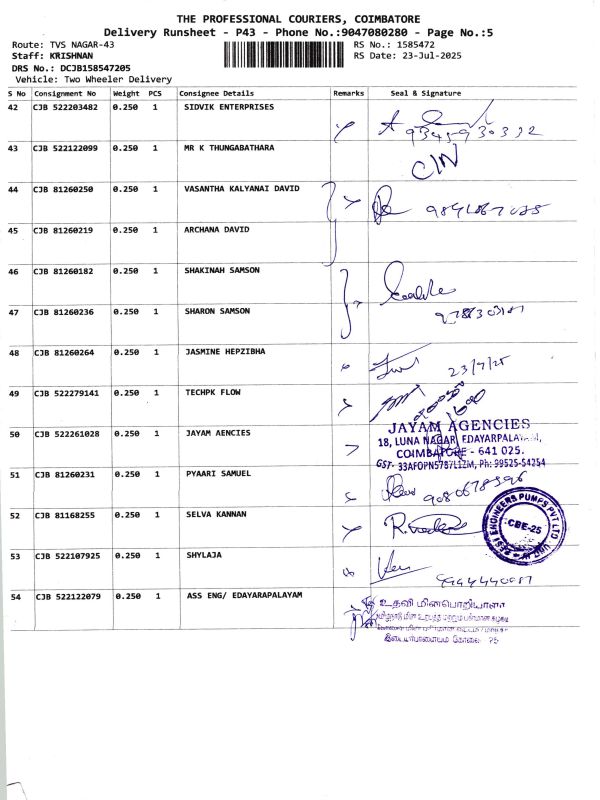 THE PROFESSIONAL COURIERS, COIMBATORE
Delivery Runsheet - P43 - Phone No.:9047080280 - Page No.:5
Route: TVS NAGAR-43 RS No.: 1585472
Staff: KRISHNAN RS Date: 23-Jul-2025
DRS No.: DCJB158547205
Vehicle: Two Wheeler Delivery
S No Consignment No Weight PCS Consignee Details Remarks Seal & Signature
42 CJB 522203482 0.250 1 SIDVIK ENTERPRISES
43 CJB 522122099 0.250 1 MR K THUNGABATHARA
44 CJB 81260250 0.250 1 VASANTHA KALYANAI DAVID
45 CJB 81260219 0.250 1 ARCHANA DAVID
46 CJB 81260182 0.250 1 SHAKINAH SAMSON
47 CJB 81260236 0.250 1 SHARON SAMSON
48 CJB 81260264 0.250 1 JASMINE HEPZIBHA 23/7/25
49 CJB 522279141 0.250 1 TECHPK FLOW
50 CJB 522261028 0.250 1 JAYAM AENCIES
JAYAM AGENCIES
18, LUNA NAGAR, EDAYARPALAYAM,
COIMBATORE - 641 025.
GST- 33AFOPN5787L1ZM, Ph: 99525-54254
51 CJB 81260231 0.250 1 PYAARI SAMUEL
52 CJB 81168255 0.250 1 SELVA KANNAN
ENGINEERS PUMPS PVT LTD
CBE-25
53 CJB 522107925 0.250 1 SHYLAJA
54 CJB 522122079 0.250 1 ASS ENG/ EDAYARAPALAYAM
உதவி மின்பொறியாளர்
இடையர்பாளையம் கோவை 25